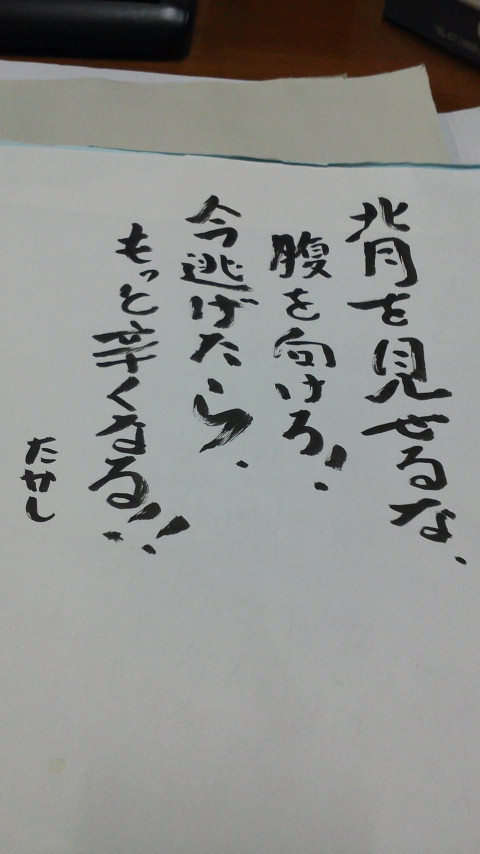 背を見せるな、
腹を向けろ!
今逃げたら、
もっと辛くなる!!
たかし